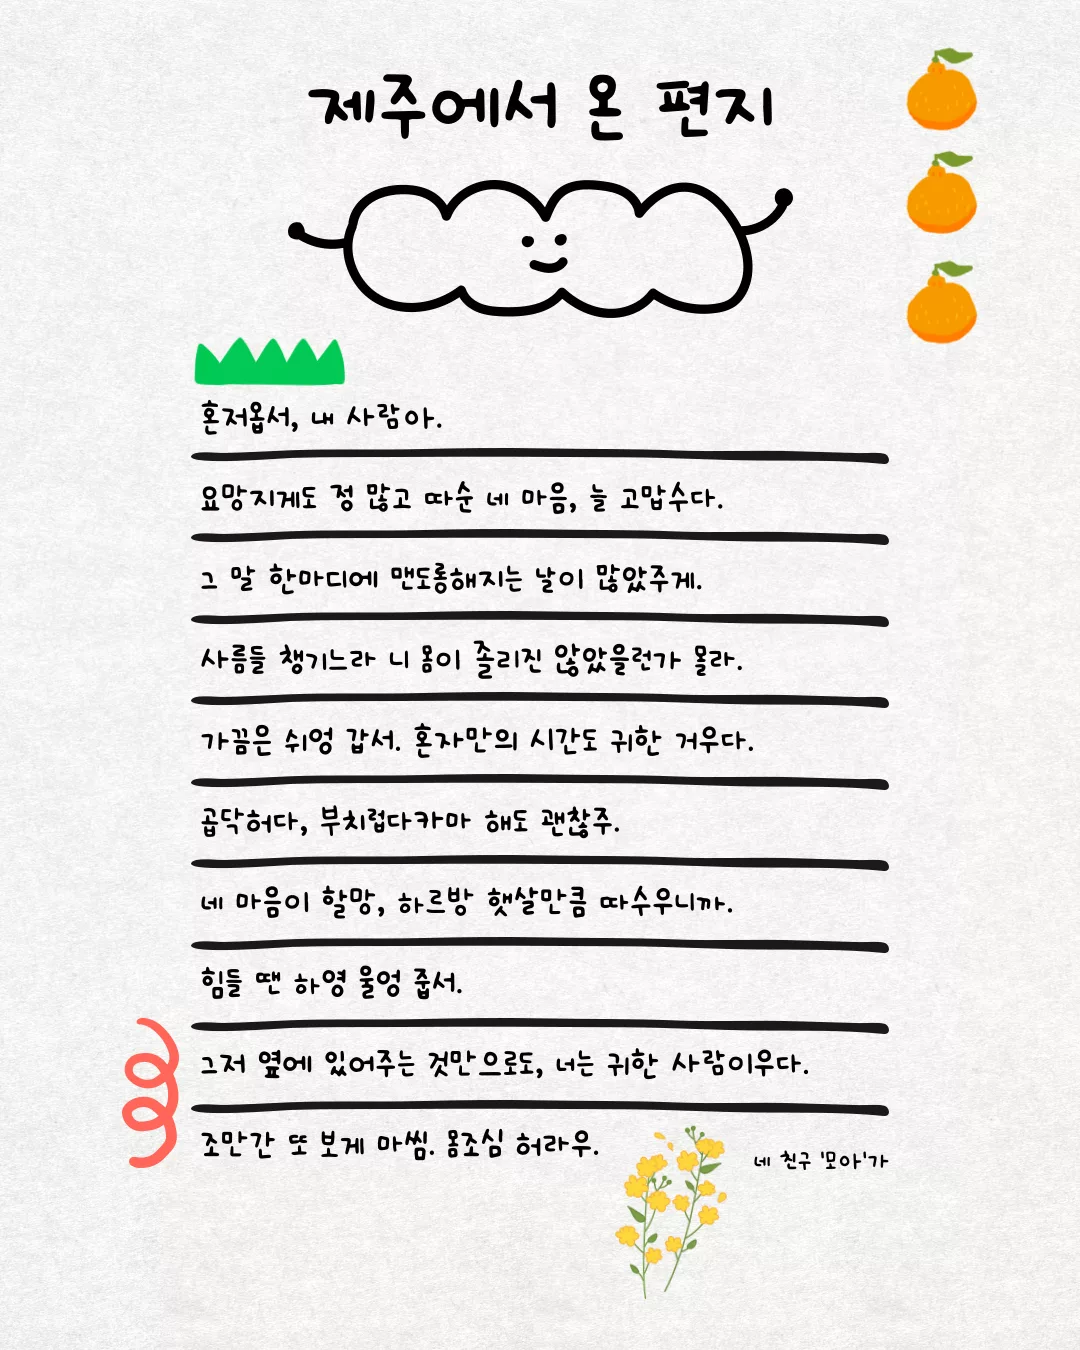 제주에서 온 편지
혼저옵서, 내 사람아.
요망지게도 정 많고 따순 네 마음, 늘 고맙수다.
그 말 한마디에 맨도롱해지는 날이 많았주게.
사름들 챙기느라 니 몸이 졸리진 않았을런가 몰라.
가끔은 쉬엉 갑서. 혼자만의 시간도 귀한 거우다.
곱닥허다, 부치럽다카마 해도 괜찮주.
네 마음이 할망, 하르방 햇살만큼 따수우니까.
힘들 땐 하영 울엉 줍서.
그저 옆에 있어주는 것만으로도, 너는 귀한 사람이우다.
조만간 또 보게 마씸. 몸조심 허라우.
네 친구 '모아'가